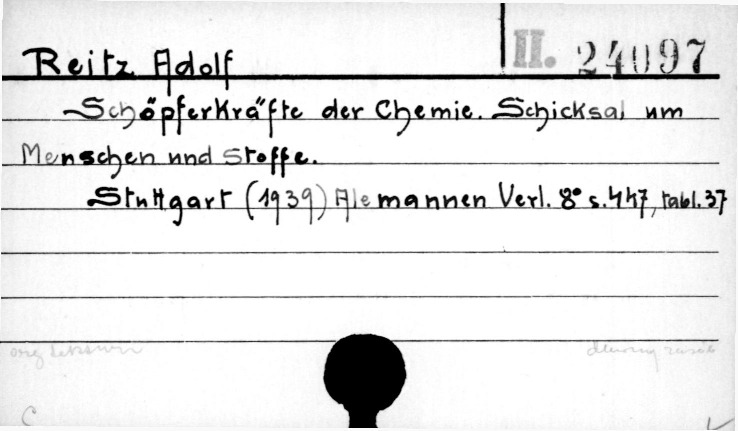 Reitz Adolf II. 24097
Schöpferkräfte der Chemie. Schicksal um
Menschen und Stoffe.
Stuttgart (1939) Alemannen Verl. 8° s. 447, tabl. 37
C